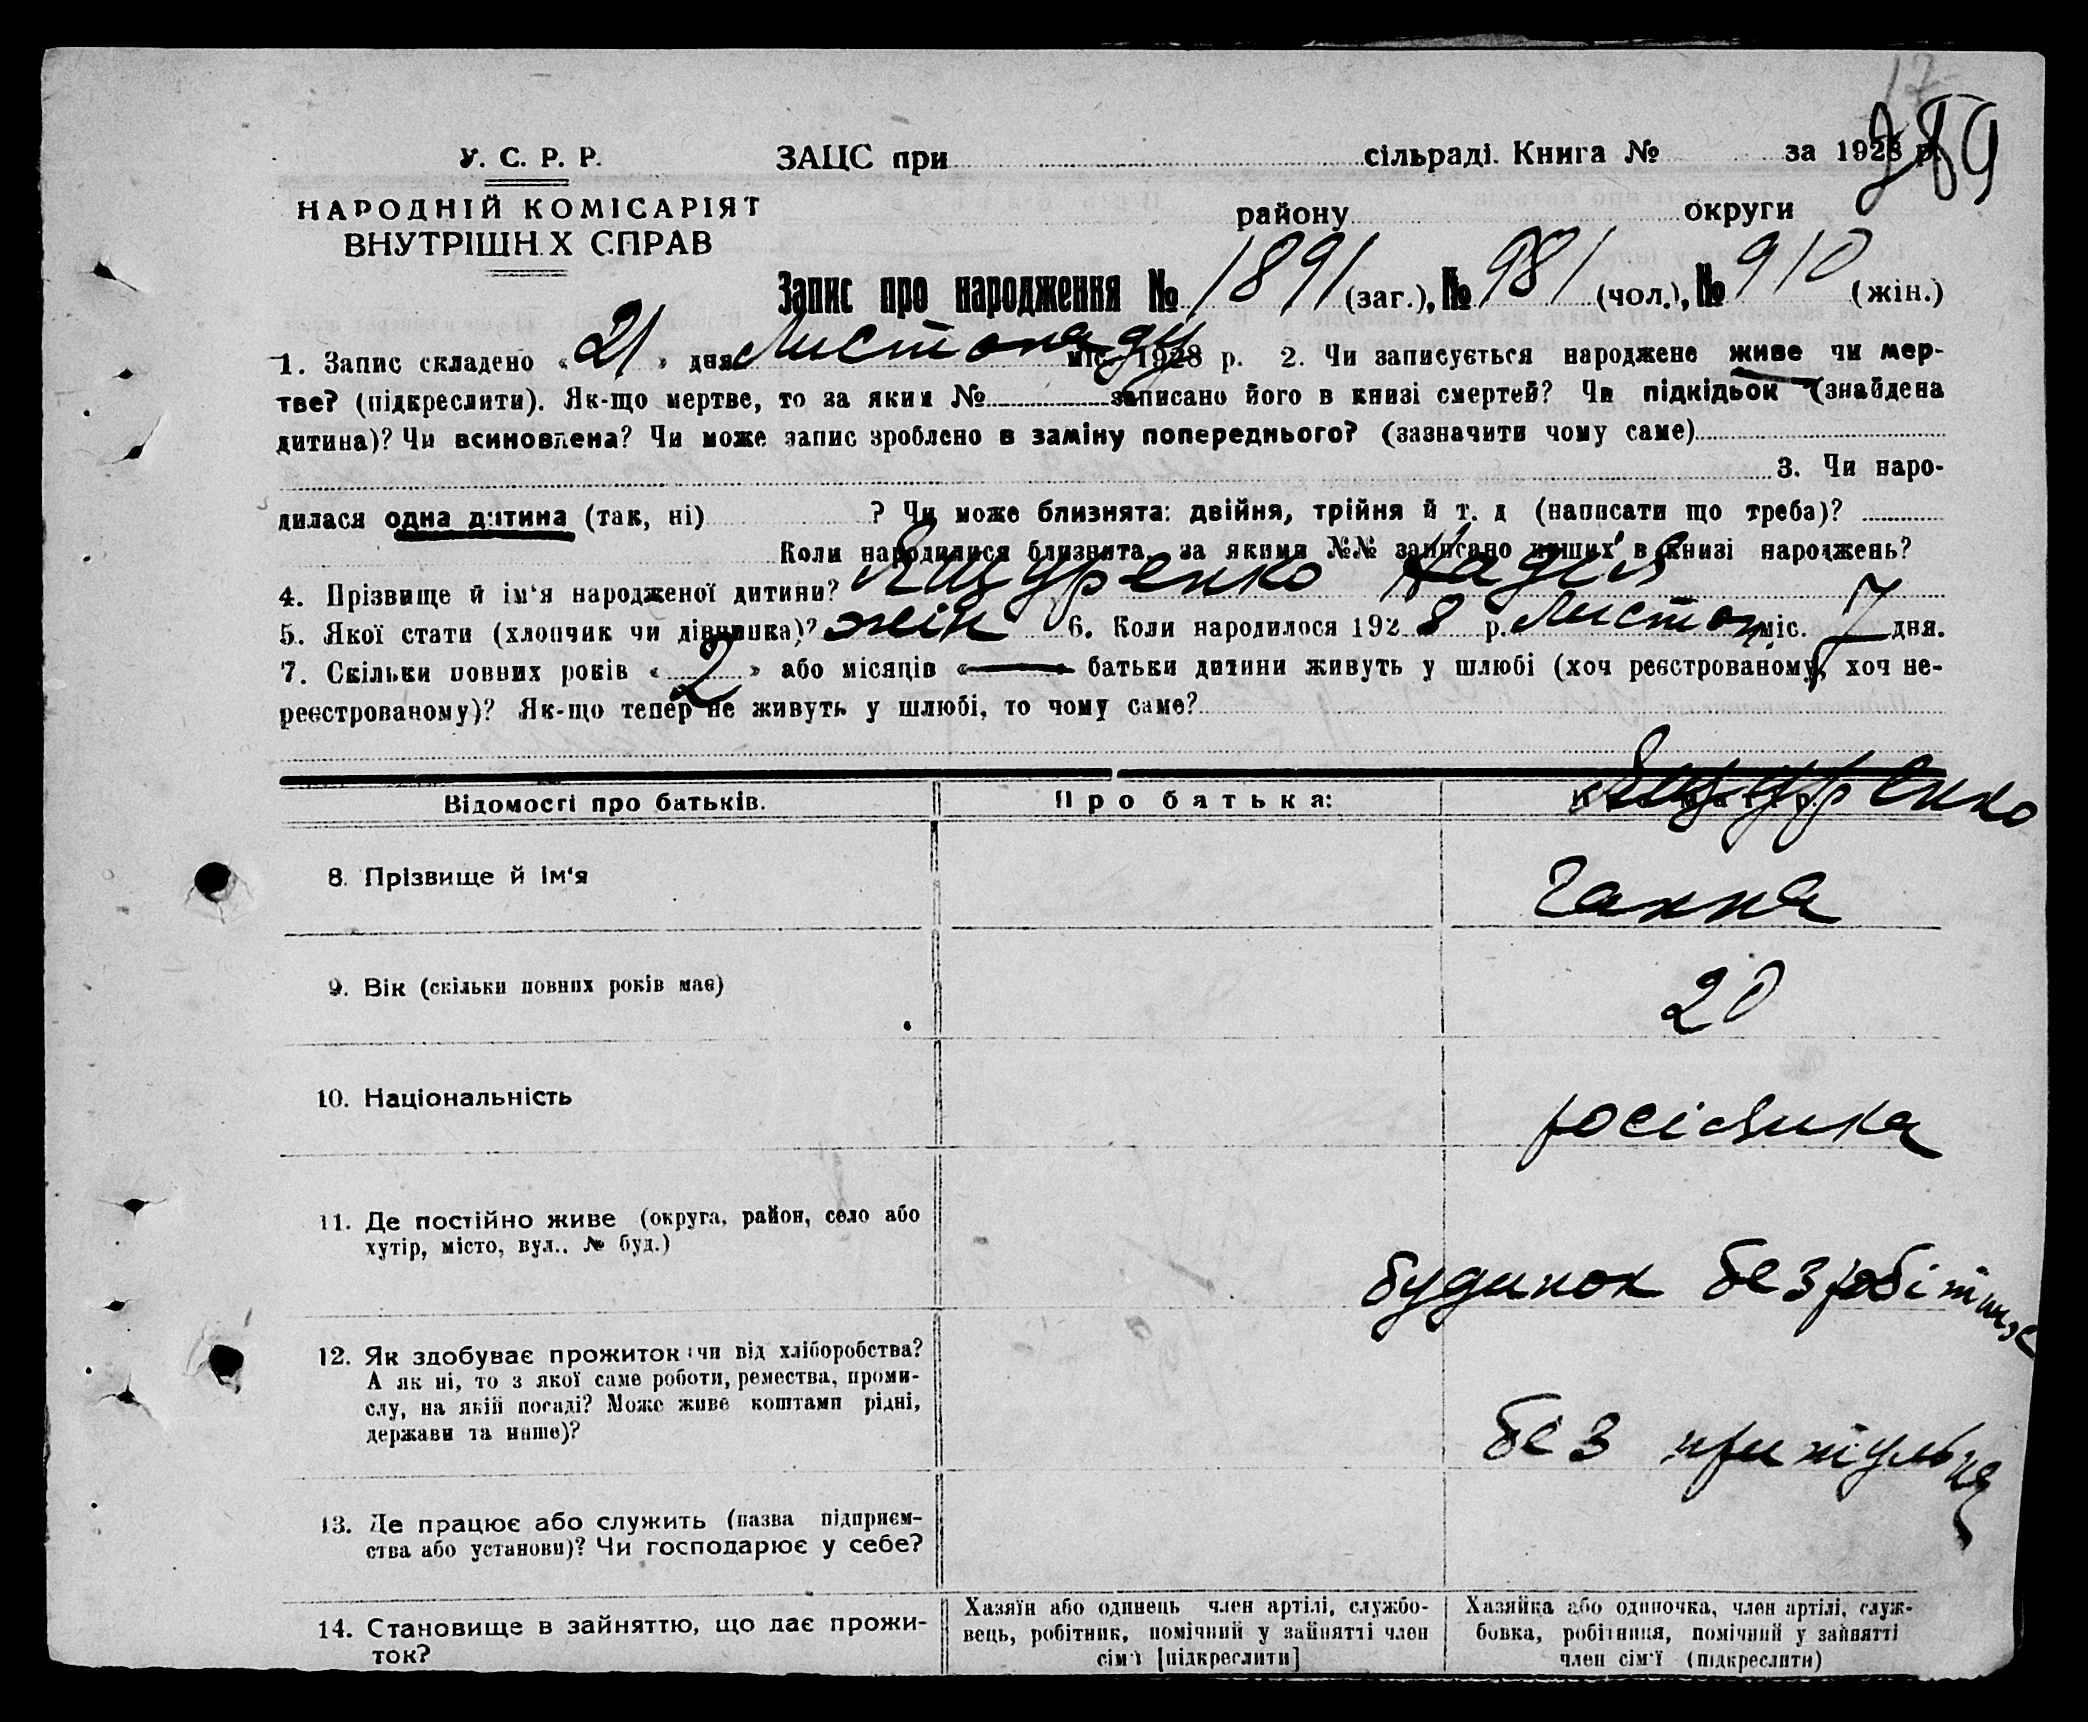 17
289
У. С. Р. Р. ЗАЦС при сільраді. Книга № за 1928 р.
НАРОДНІЙ КОМІСАРІЯТ району округи
ВНУТРІШН.Х СПРАВ
Запис про народження № 1891 (заг.), № 981 (чол.), № 910 (жін.)
1. Запис складено «21» дня Листопаду міс. 1928 р. 2. Чи записується народжене живе чи мер-
тве? (підкреслити). Як-що мертве, то за яким № записано його в книзі смертей? Чи підкідьок (знайдена
дитина)? Чи всиновлена? Чи може запис зроблено в заміну попереднього? (зазначити чому саме)
3. Чи наро-
дилася одна дитина (так, ні) ? Чи може близнята: двійня, трійня й т. д (написати що треба)?
Коли народилися близнята, за якими №№ записано инших в книзі народжень?
4. Прізвище й ім‘я народженої дитини? Ящуренко Надія
5. Якої стати (хлопчик чи дівчинка)? жін 6. Коли народилося 1928 р. Листоп. міс. 7 дня.
7. Скільки повних років «2» або місяців «—» батьки дитини живуть у шлюбі (хоч реєстрованому, хоч не-
реєстрованому)? Як-що тепер не живуть у шлюбі, то чому саме?
Відомості про батьків. Про батька: Про матір.
8. Прізвище й ім‘я Ящуренко
Ганна
9. Вік (скільки повних років має) 20
10. Національність росіянка
11. Де постійно живе (округа, район, село або
хутір, місто, вул.. № буд.) будинок безробітних
12. Як здобуває прожиток чи від хліборобства?
А як ні, то з якої саме роботи, ремества, проми-
слу, на якій посаді? Може живе коштами рідні,
держави та инше)? без притульна
13. Де працює або служить (назва підприєм-
ства або установи)? Чи господарює у себе?
14. Становище в зайняттю, що дає прожи-
ток?
Хазяїн або одинець член артілі, службо-
вець, робітник, помічний у зайнятті член
сім‘ї [підкреслити]
Хазяйка або одиночка, член артілі, служ-
бовка, робітниця, помічний у зайнятті
член сім‘ї (підкреслити)